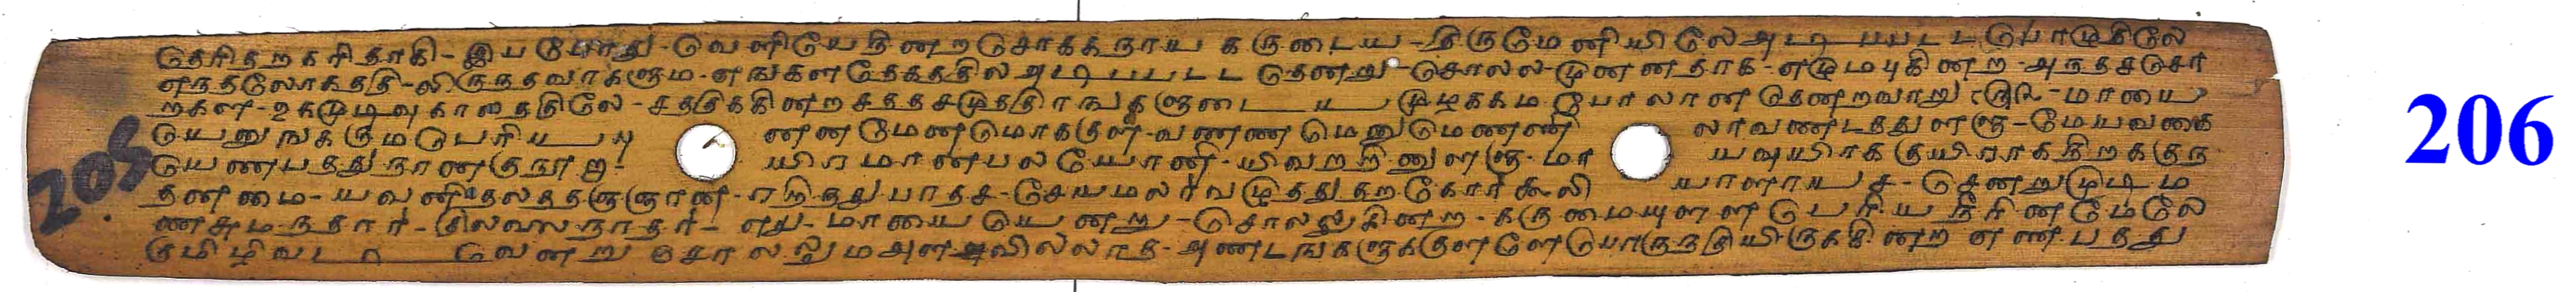 தெரிதறகரிதாகி-இயபோது-வெளியேநினறசொககநாயகருடைய-திருமேனியிலேஅடிபபடடபொழுதிலே
எநதலோகததி-லிருநதவரகளும-எஙகளதேகததிலஅடிபபடடதெனறு-சொலல-முனனதாக-எழுமபுகினற-அநதசசொ
றகள-உகமுடிவுகாலததிலே-சததிககினறசததசமுததிரஙகளுடையமுழககமபோலானதெனறவாறு-மாயை
யெனுஙகுமபெரியபு னனமேணமாககுள-வணணமெனுமெணணி லாவணடததுளளு-மேயவகை
யெணபததுநானகுநூறு- யிரமானபலயோனி-யிவறறினுளளு-மா யவுயிரககுயிராகநிறகுந
தனமை-யவனிதலததஞஞான-எடுதது பாதச-செயமலர்வழுததுதறகோர்கூலி யாளாயச-செனறுமுடிம
ணசுமநதார்-திலவலநாதர்-எது-மாயையெயனறு-சொலலுகினற-கருமையுளளபெரியநீரினமேலே
குமிழிவடிவெனறுசொலலுமஅளவிலலாத-அணடஙகளுககுளளேபொருநதியிருககினறஎணபதது
205
206